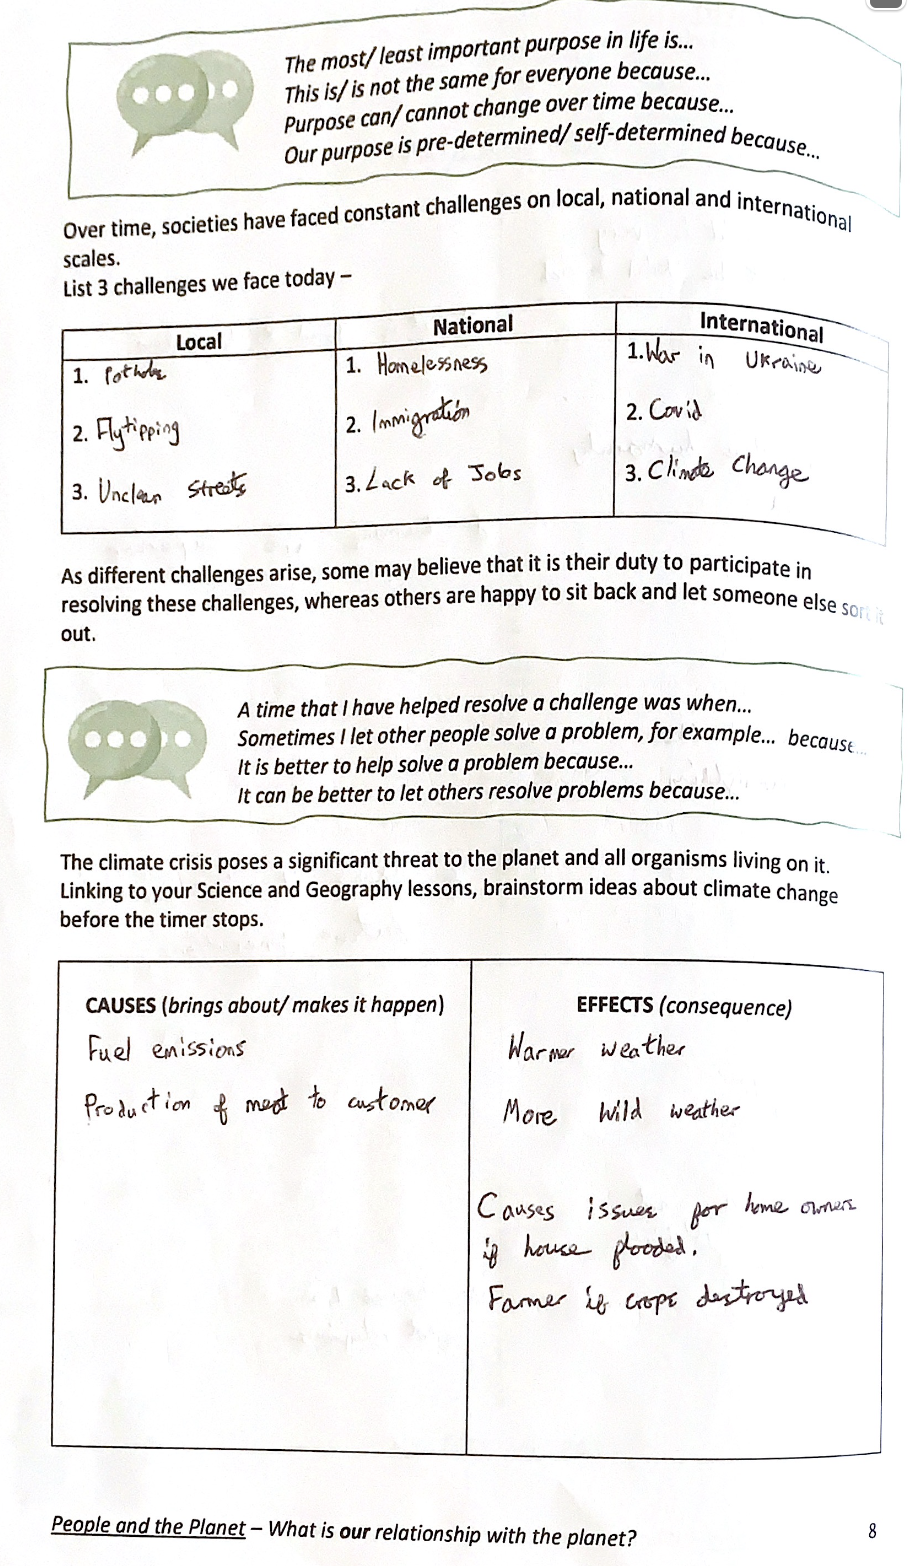 The most/ least important purpose in life is...
This is/ is not the same for everyone because...
Purpose can/ cannot change over time because...
Our purpose is pre-determined/ self-determined because...
Over time, societies have faced constant challenges on local, national and international
scales.
List 3 challenges we face today –
Local
National
International
1. Pothole
1. Homelessness
1. War in Ukraine
2. Flytipping
2. Immigration
2. Covid
3. Unclean streets
3. Lack of Jobs
3. Climate Change
As different challenges arise, some may believe that it is their duty to participate in
resolving these challenges, whereas others are happy to sit back and let someone else sort it
out.
A time that I have helped resolve a challenge was when...
Sometimes I let other people solve a problem, for example... because...
It is better to help solve a problem because...
It can be better to let others resolve problems because...
The climate crisis poses a significant threat to the planet and all organisms living on it.
Linking to your Science and Geography lessons, brainstorm ideas about climate change
before the timer stops.
CAUSES (brings about/ makes it happen)
Fuel emissions
Production of meat to customer
EFFECTS (consequence)
Warmer weather
More wild weather
Causes issues for home owners
if house flooded.
Farmer if crops destroyed
People and the Planet – What is our relationship with the planet?
8